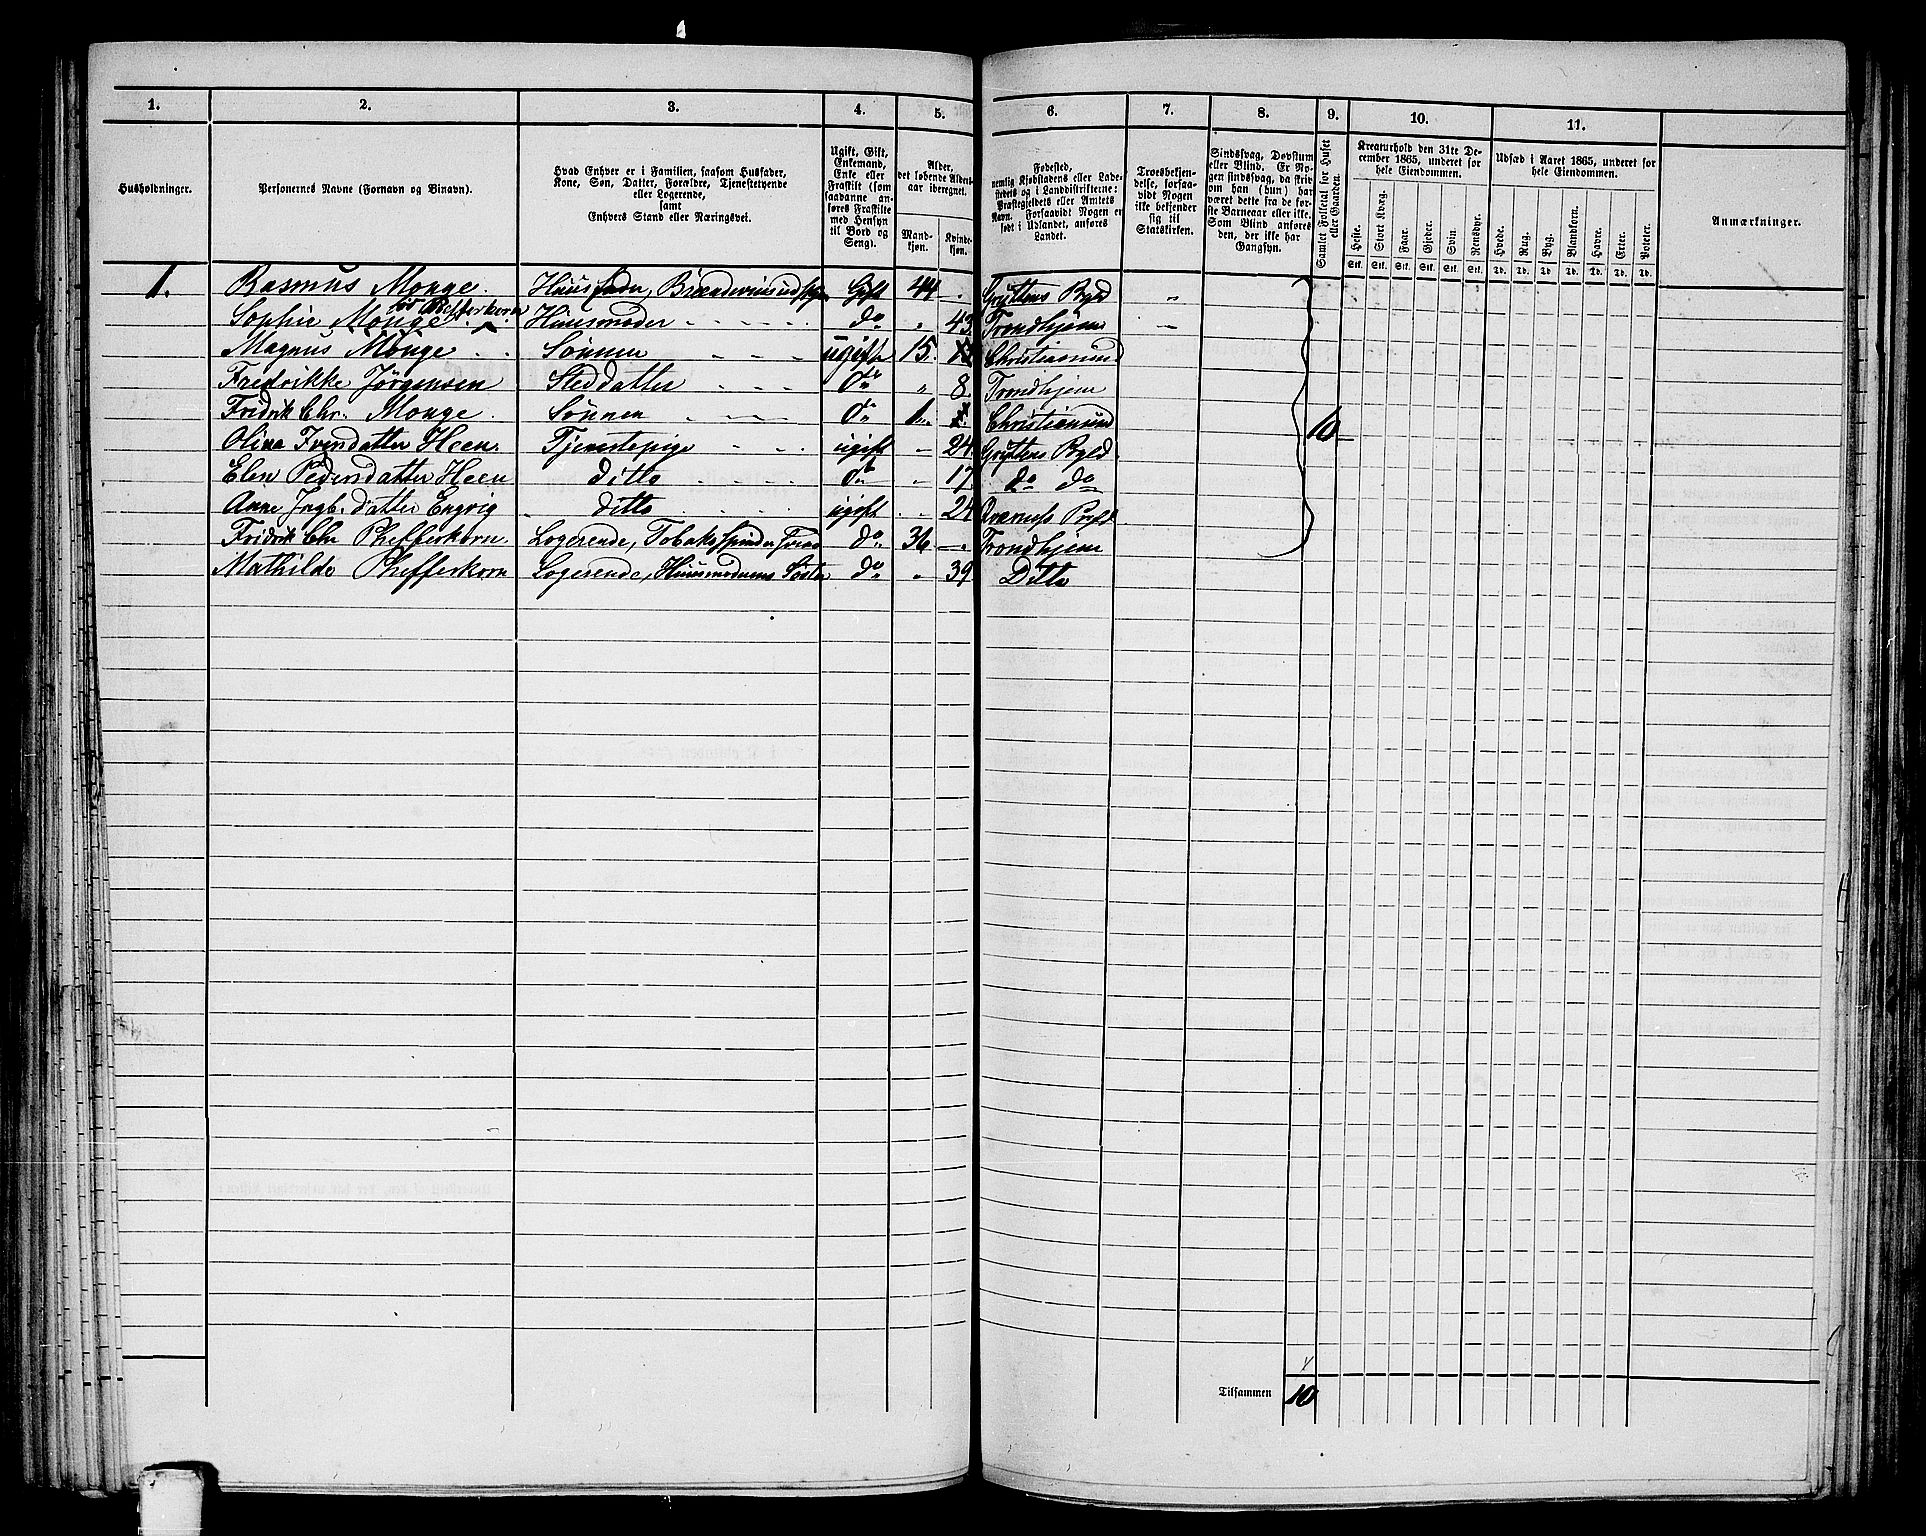 1. 2. 3. 4. 5. 6. 7. 8. 9. 10. 11.
Husholdninger.
Personernes Navne (Fornavn og Binavn).
Hvad Enhver er i Familien, saasom Husfader,
Kone, Søn, Datter, Forældre, Tjenestetyende
eller Logerende,
samt
Enhvers Stand eller Næringsvei.
Ugift, Gift,
Enkemand,
Enke eller
Fraskilt (som
saadanne an-
føres Fraskilte
med Hensyn
til Bord og
Seng).
Alder,
det løbende Alders-
aar iberegnet.
Mand-
kjøn.
Kvinde-
kjøn.
Fødested,
nemlig Kjøbstadens eller Lade-
stedets og i Landdistrikterne:
Præstegjeldets eller Amtets
Navn. Forsaavidt Nogen er
født i Udlandet, anføres
Landet.
Troesbekjen-
delse, forsaa-
vidt Nogen
ikke bekjender
sig til
Statskirken.
Sindssvag, Døvstum
eller Blind. Er No-
gen sindssvag, da skri-
ves om han (hun) har
været dette fra de før-
ste Barneaar eller ikke.
Som Blind anføres
den, der ikke har
Gangsyn.
Samlet Folketal for Huset
eller Gaarden.
Kreaturhold den 31te De-
cember 1865, underet for
hele Eiendommen.
Heste. Stort Kvæg. Faar. Gjeder. Svin. Rensdyr.
Stk. Stk. Stk. Stk. Stk. Stk.
Udsæd i Aaret 1865, underet for
hele Eiendommen.
Hvede. Rug. Byg. Blandkorn. Havre. Erter. Poteter.
Td. Td. Td. Td. Td. Td. Td.
Anmærkninger.
1. Rasmus Monge. Huusfader, Brændeviinsudskj. Gift 44 " Gryttens Pgld "
Pfefferkorn
Sophie Monge Huusmoder do " 43 Trondhjem
Magnus Monge Sønnen ugift 15. Christiansund
Fredrikke Jørgensen Steddatter do " 8 Trondhjem
Fridrik Chr. Monge Sønnen do 1 Christiansund 10
Olina Iversdatter Heen. Tjenestepige ugift " 24 Gryttens Pgld
Elen Pedersdatter Heen ditto do " 17 do do
Anne Ingb.datter Engvig ditto ugift " 24
Fridrik Chr Pheffferkorn. Logerende, Tobakspinder do 36 " Trondhjem
Mathilde Phefferkorn Logerende, Huusmoderens Søster do " 39 Ditto
Tilsammen 10